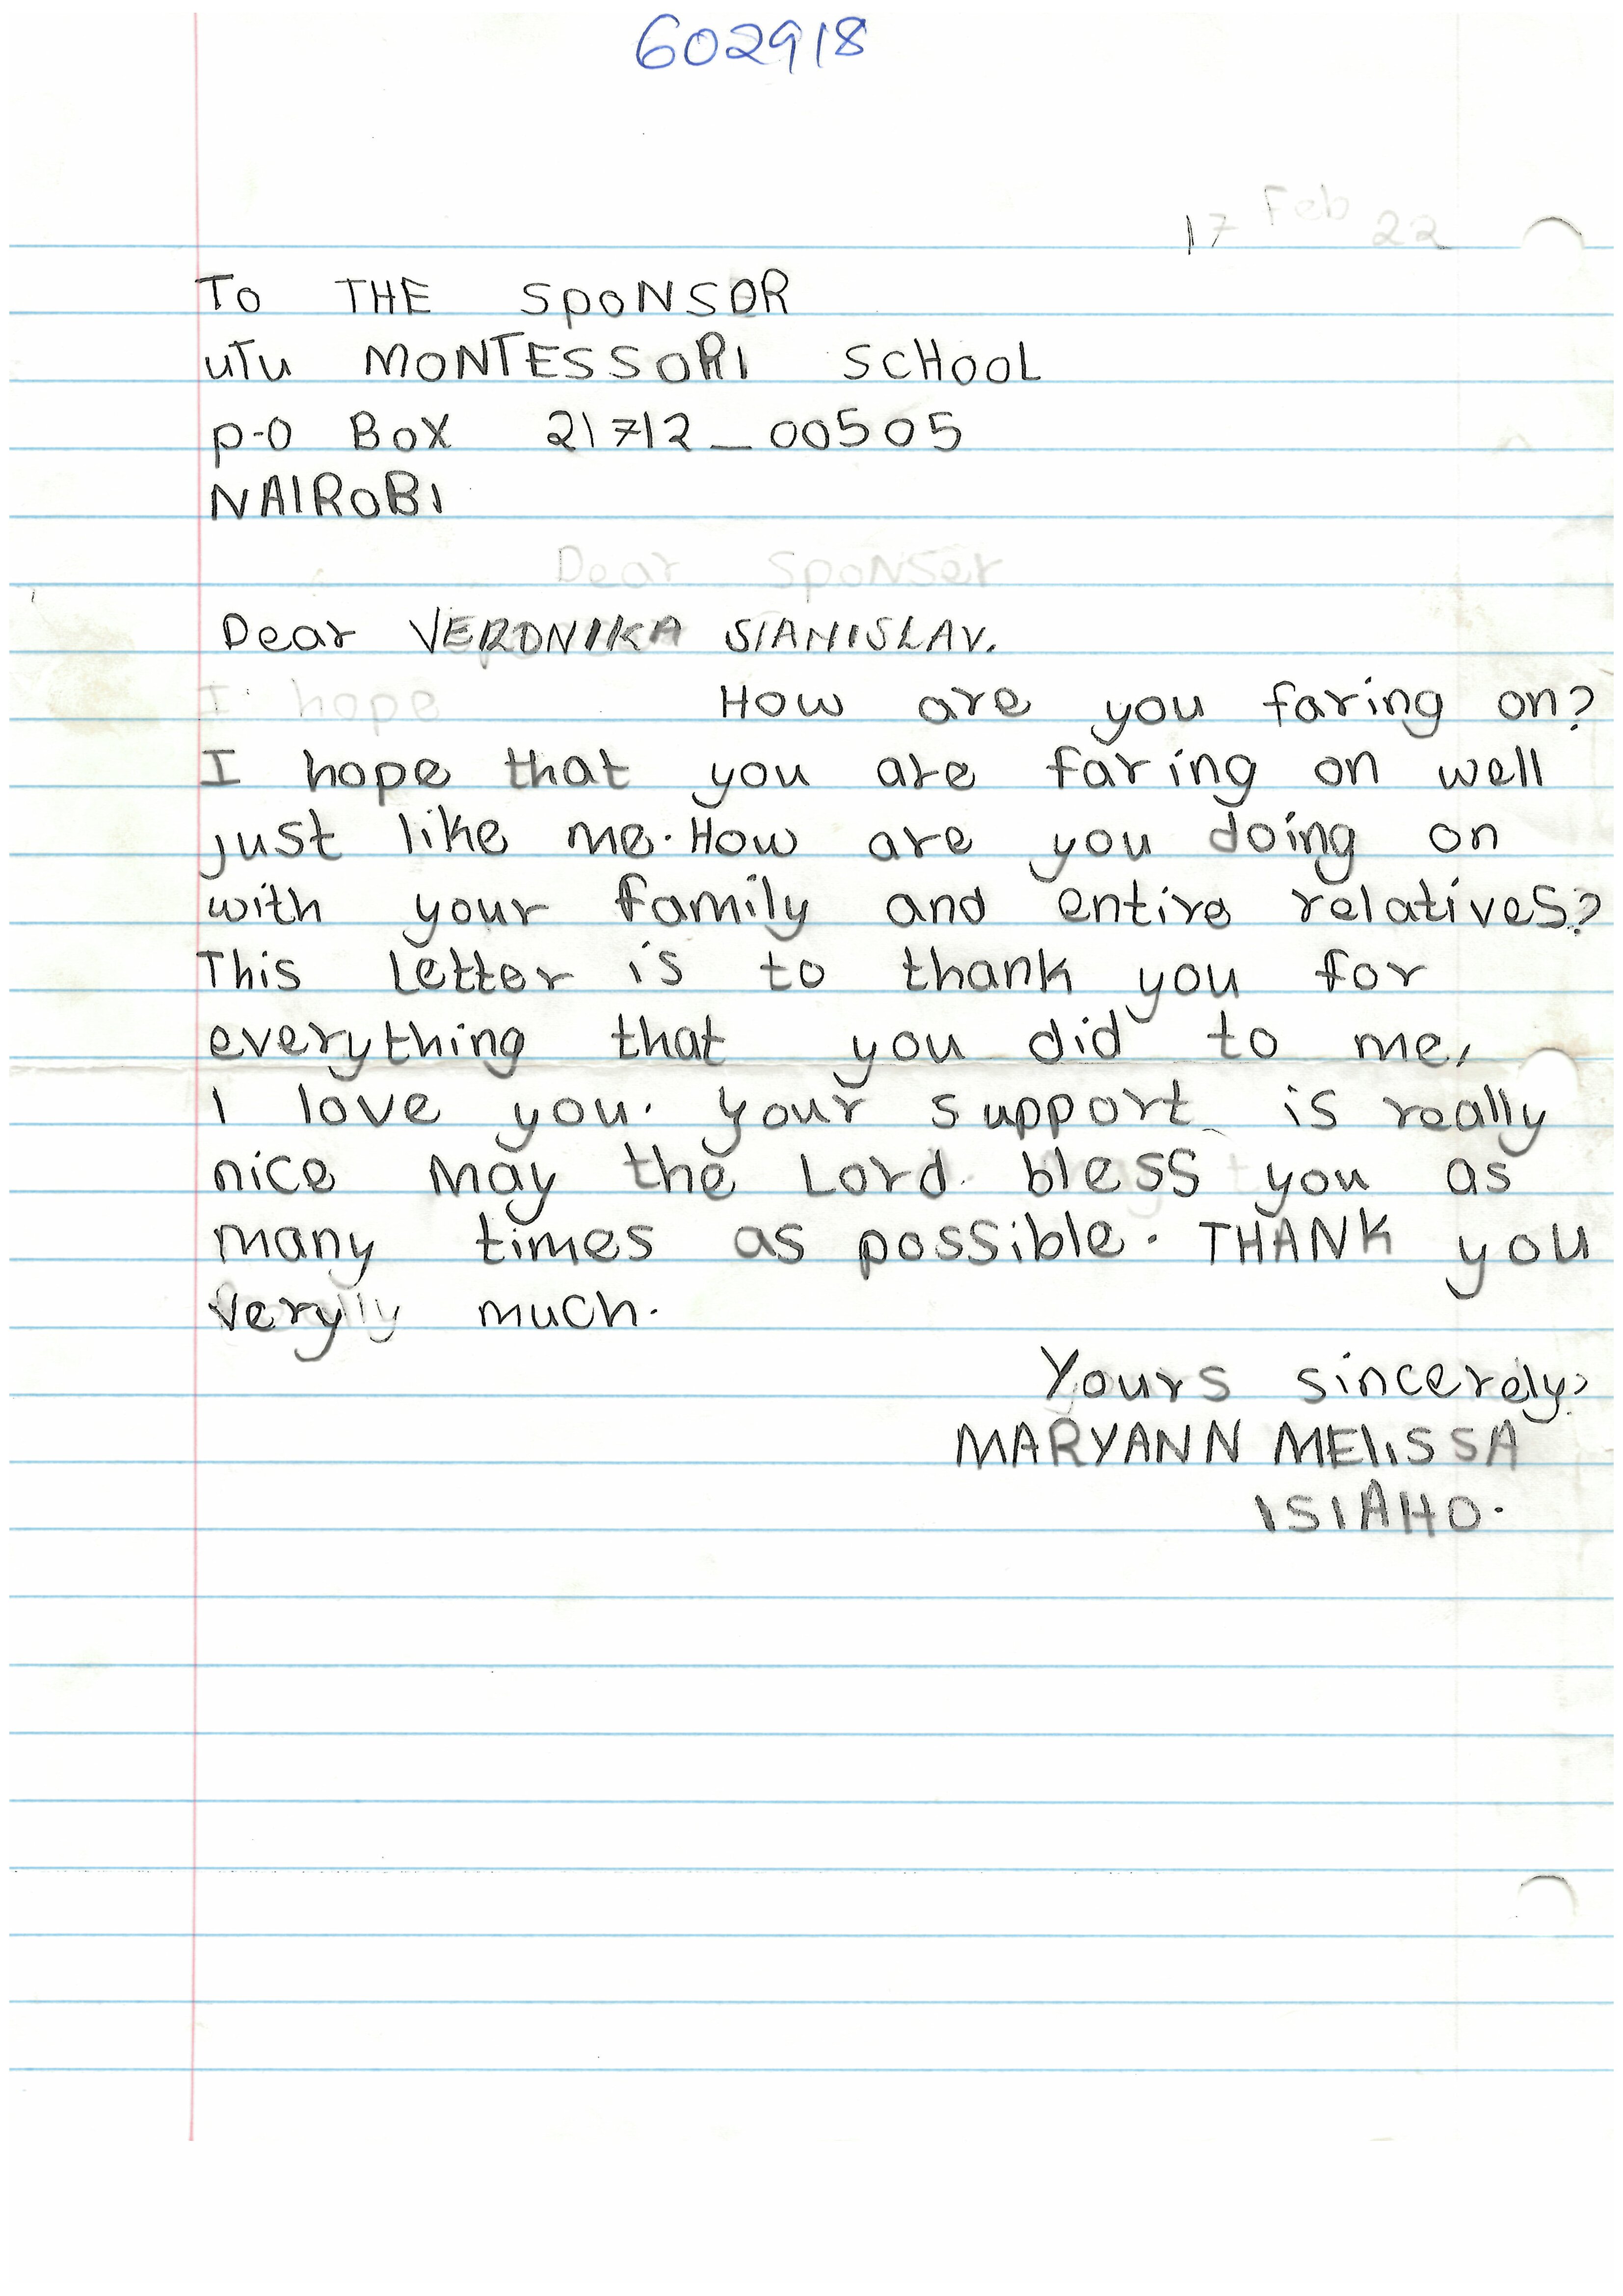 602918
17 Feb 22
To THE SPONSOR
uTu MONTESSORI SCHOOL
p-o Box 21712_00505
NAIROBI
Dear Sponser
Dear VERONIKA SIANISLAV.
I hope How are you faring on?
I hope that you are faring on well
just like me. How are you doing on
with your family and entire relatives?
This letter is to thank you for
everything that you did to me,
I love you. your support is really
nice may the Lord bless you as
many times as possible. THANK you
very much.
Yours sincerely,
MARYANN MELISSA
ISIAHO.